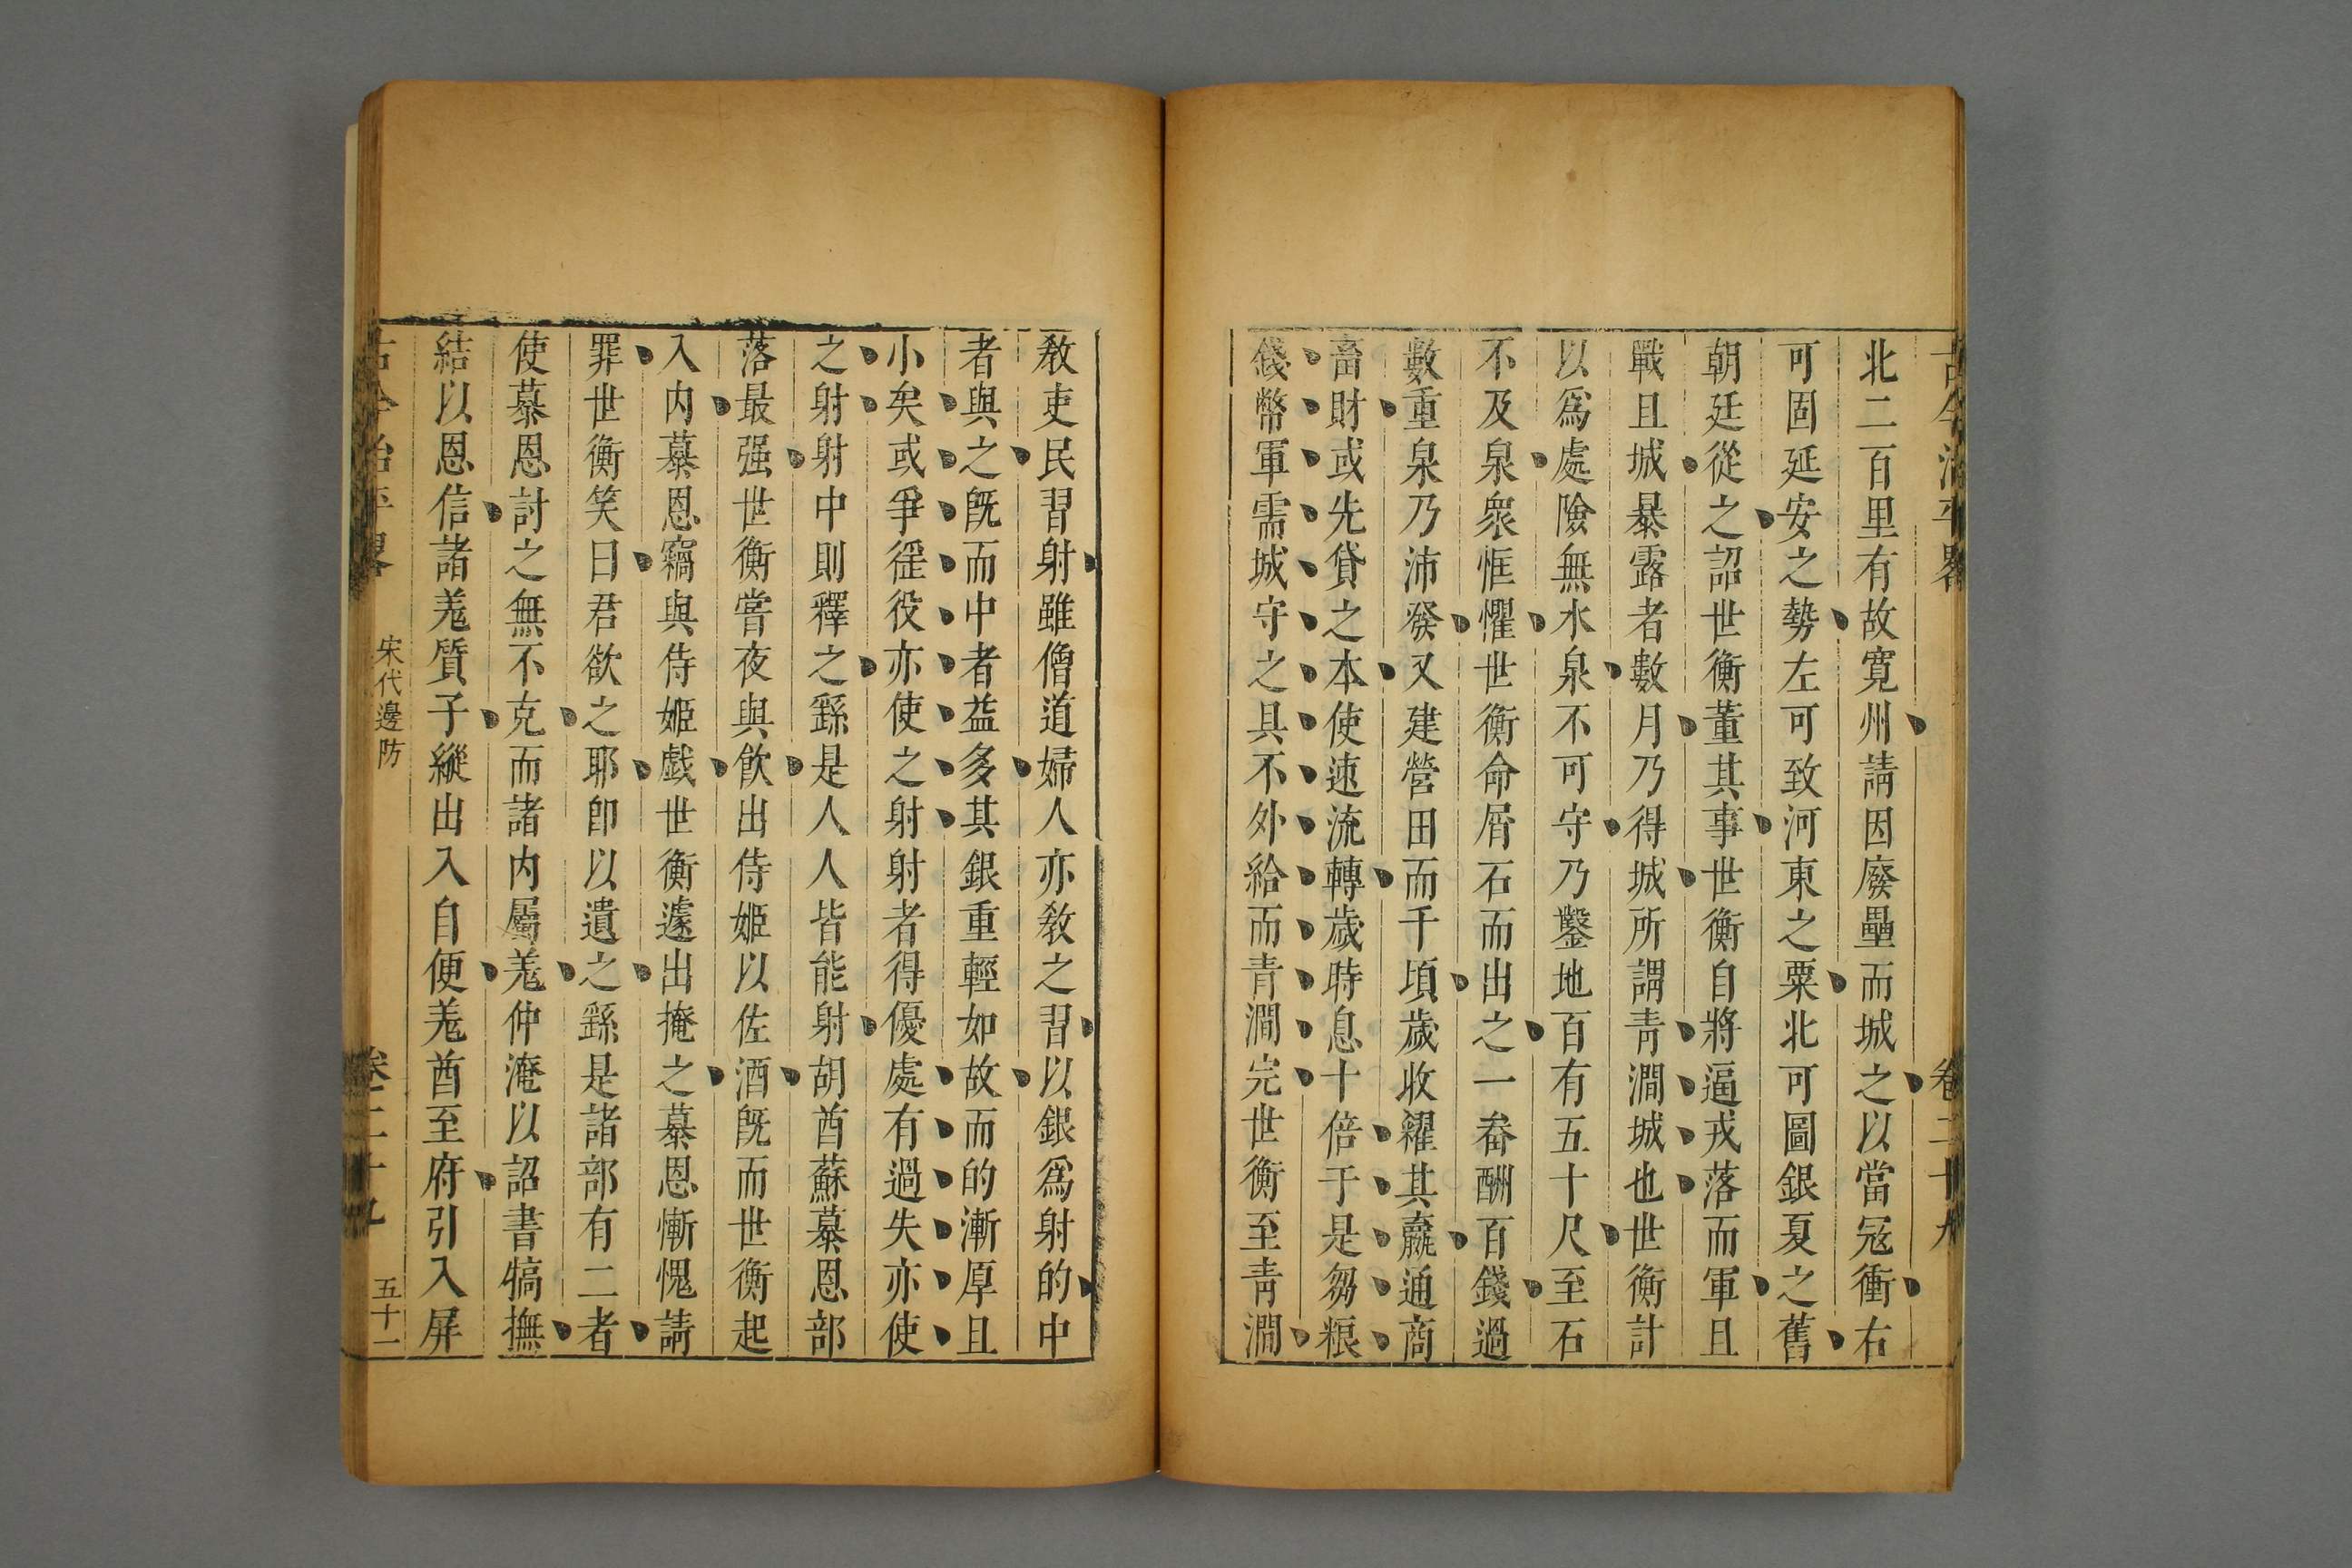 古今治平畧 卷二十九
北二百里有故寬州請因廢壘而城之以當冦衝右
可固延安之勢左可致河東之粟北可圖銀夏之舊
朝廷從之詔世衡董其事世衡自將逼戎落而軍且
戰且城暴露者數月乃得城所謂靑澗城也世衡計
以爲處險無水泉不可守乃鑿地百有五十尺至石
不及泉衆恇懼世衡命屑石而出之一畚酬百錢過
數重泉乃沛發又建營田而千頃歲收糴其贏通商
畜財或先貸之本使速流轉歲時息十倍于是芻粮
錢幣軍需城守之具不外給而青澗完世衡至靑澗
敎吏民習射雖僧道婦人亦敎之習以銀爲射的中
者與之旣而中者益多其銀重輕如故而的漸厚且
小矣或爭徭役亦使之射射者得優處有過失亦使
之射射中則釋之繇是人人皆能射胡酋蘇慕恩部
落最强世衡嘗夜與飲出侍姬以佐酒旣而世衡起
入内慕恩竊與侍姬戲世衡遽出掩之慕恩慚愧請
罪世衡笑曰君欲之耶卽以遺之繇是諸部有二者
使慕恩討之無不克而諸内屬羌仲淹以詔書犒撫
結以恩信諸羌質子縱出入自便羌酋至府引入屏
古今治平畧 宋代邊防 卷二十九 五十一